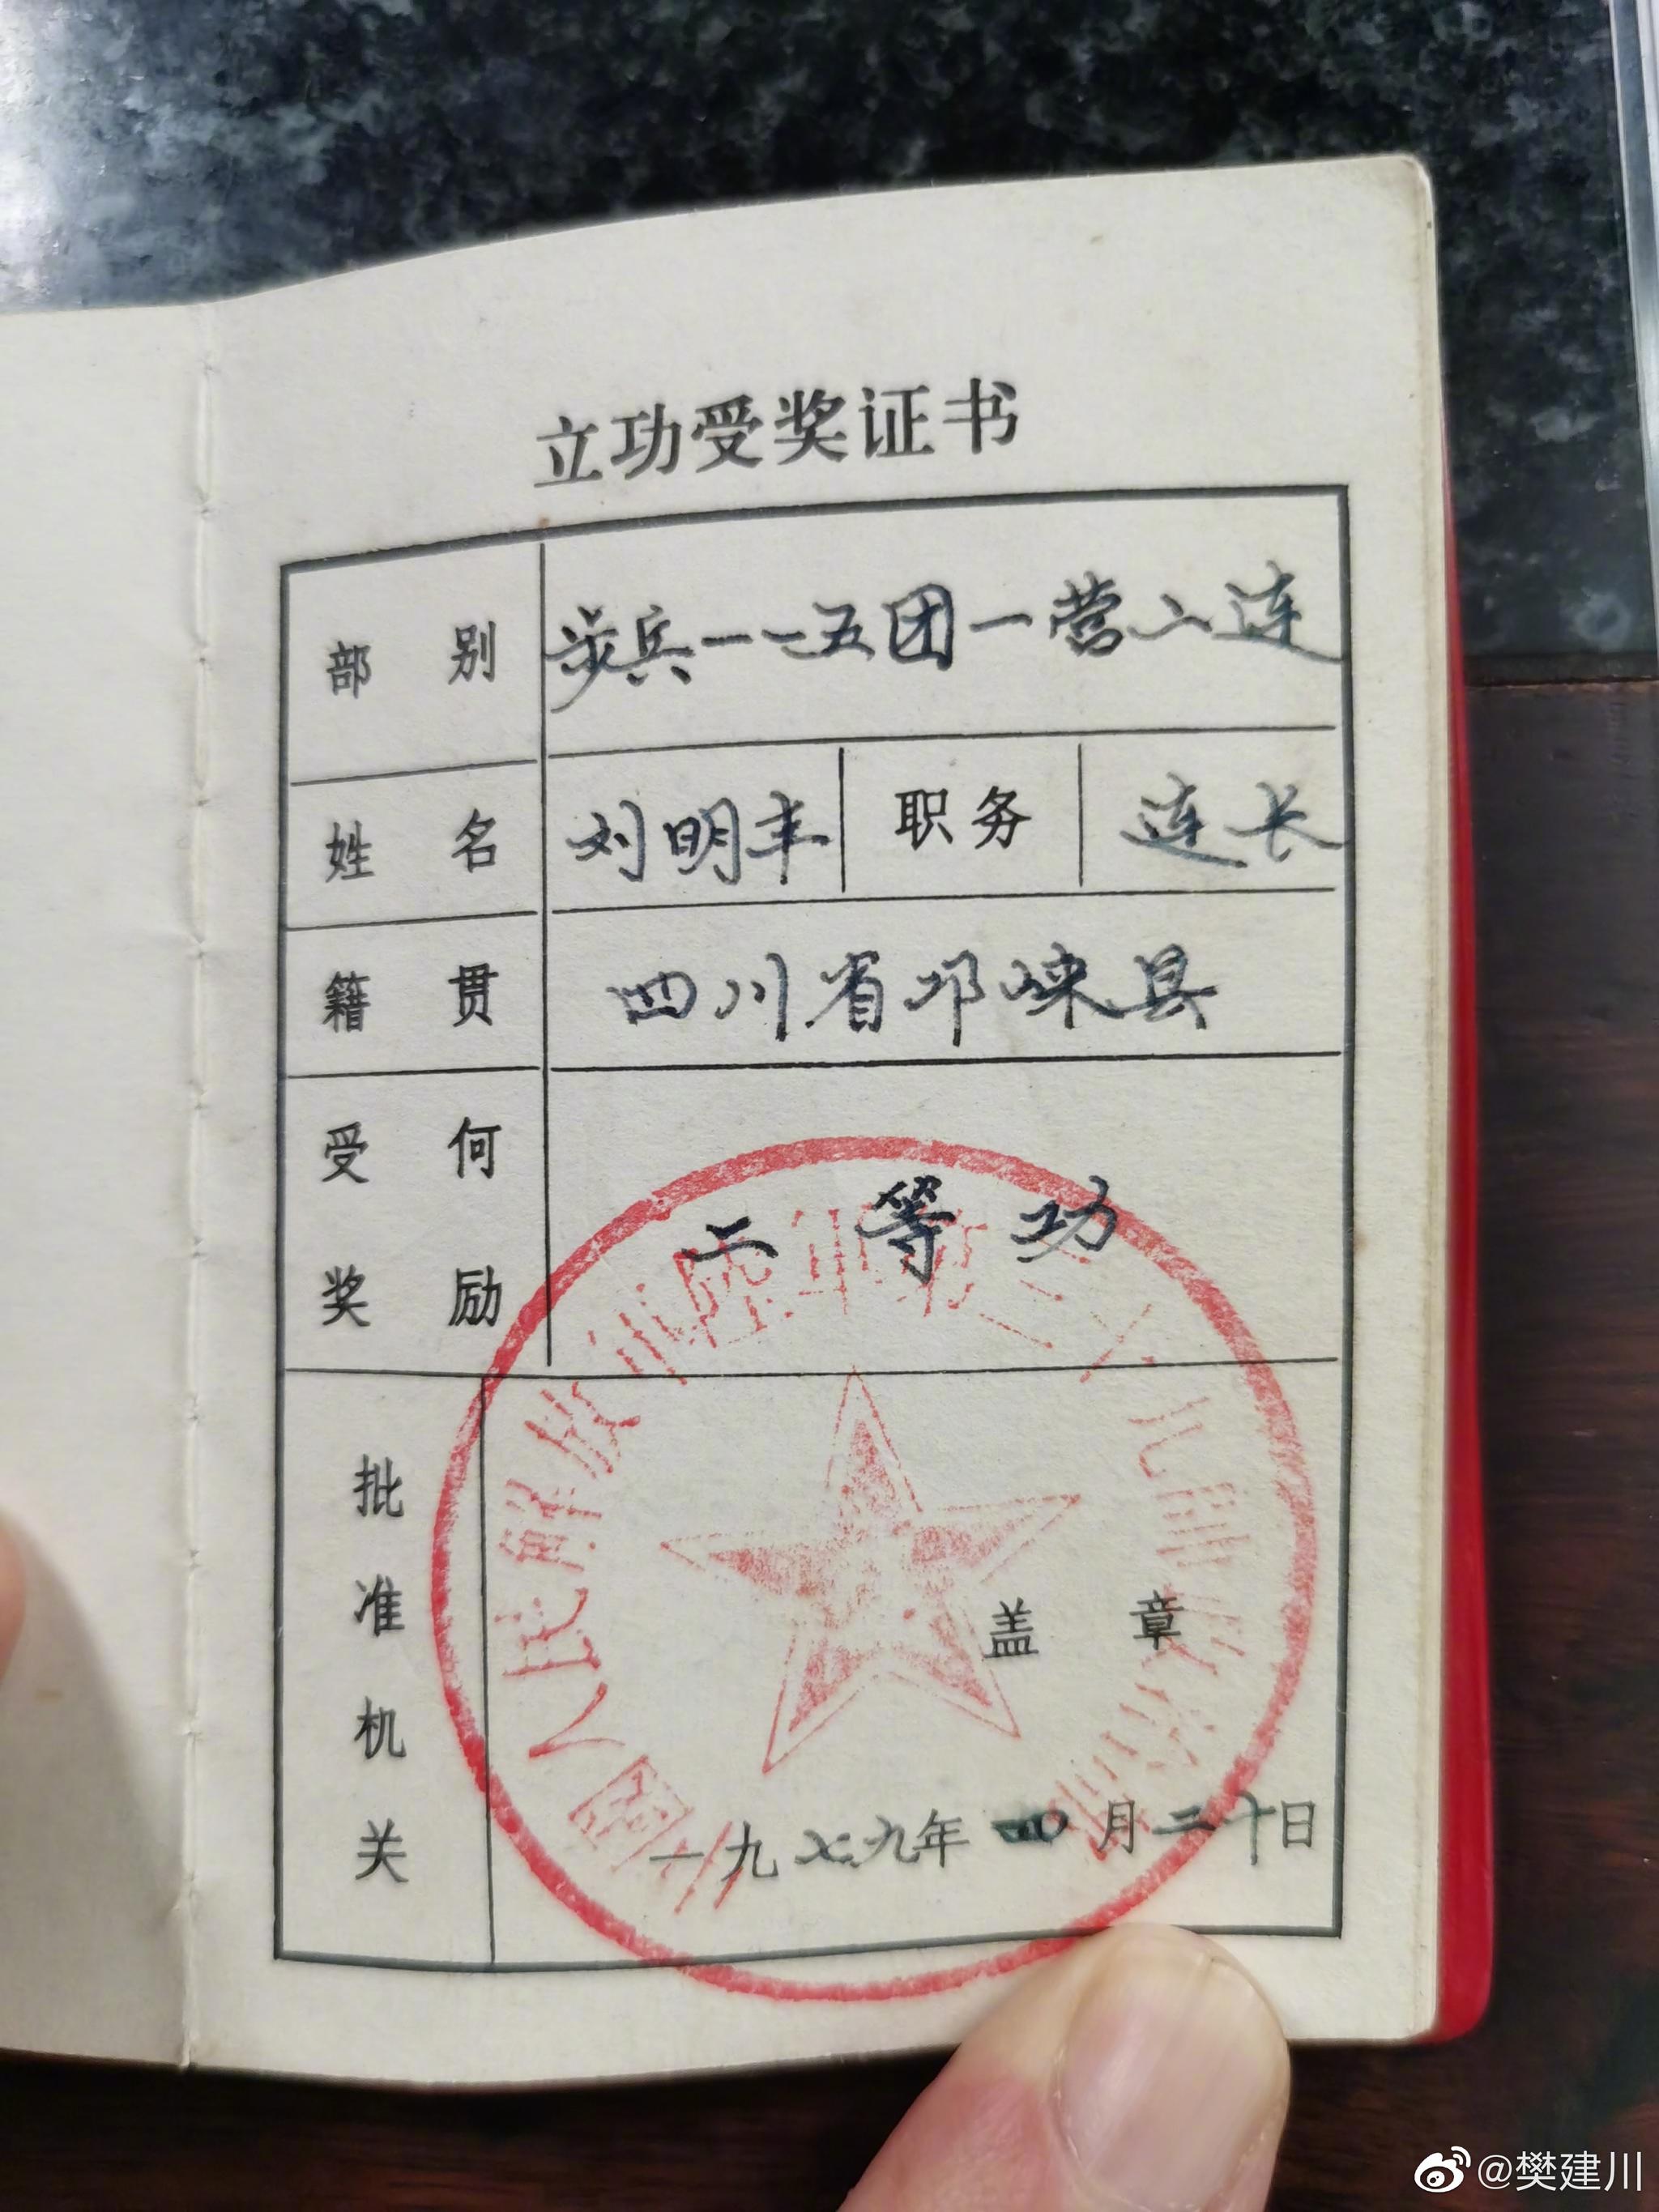 立功受奖证书
部别 步兵一一五团一营二连
姓名 刘明丰 职务 连长
籍贯 四川省邛崃县
受何奖励 二等功
批准机关 盖章
一九七九年四月二十日
国人民解放军陆军第三十九师政治部
@樊建川